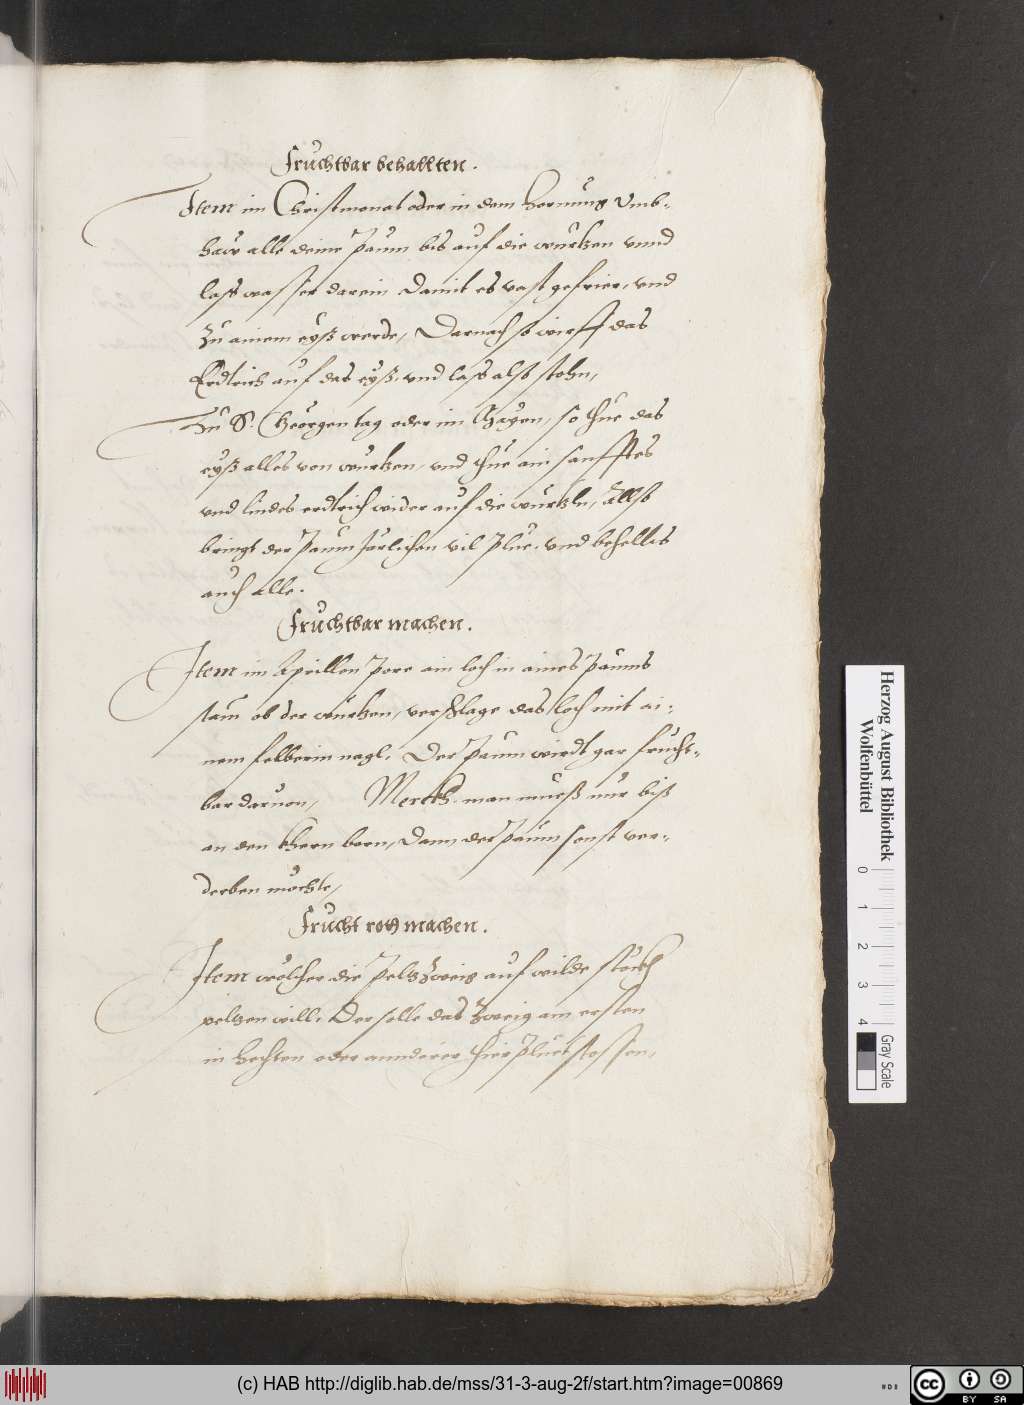 Fruchtbar behallten.
Item im Christmonat oder in dem Hornung Umb-
haw alle deine Paum bis auf die wurtzen unnd
lass wasser darein damit es vast gefrier, und
zu ainem eyß werde, Darnach so wirff das
Erdtrich auf das eyß, und lass also stehn,
Zu S. Georgen tag oder im Mayen, so thue das
eyß alles von wurtzen, und thue ain sanfftes
und lindes erdtrich wider auf die wurtzln, Allso
bringt der Paum Järlichen vil Plue, und behellts
auch alle.
Fruchtbar machen.
Item im Aprillen Pore ain loch in aines Paums
stam ob der wurtzen, verschlage das loch mit ai-
nem felberin nagl, Der Paum wirdt gar frucht-
bar davon, Merckh man mueß nur biß
an den khern born, Dann der Paum sonst ver-
derben möchte,
Frucht roth machen.
Item wölcher die Peltzzweig auf wilde stöckh
peltzen will, Der solle das zweig am ersten
in hechten oder annderer thier Pluet stossen,
Herzog August Bibliothek
Wolfenbüttel
0 1 2 3 4
Gray Scale
(c) HAB http://diglib.hab.de/mss/31-3-aug-2f/start.htm?image=00869
cc BY SA